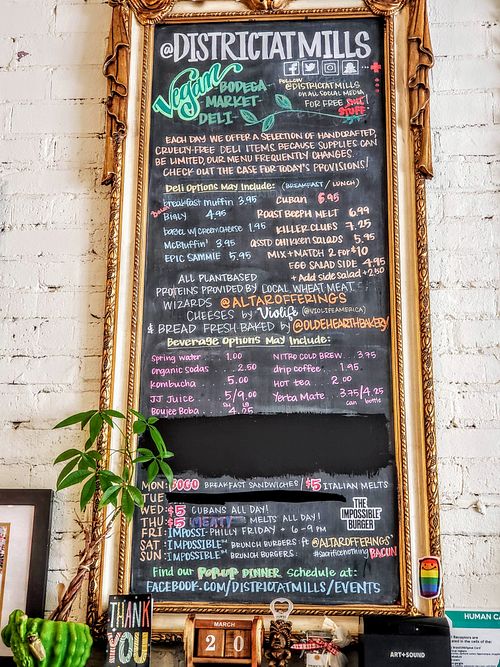 @DISTRICTATMILLS
Vegan BODEGA-
MARKET-
DELI-
FOLLOW
@DISTRICTATMILLS
ON ALL SOCIAL MEDIA
FOR FREE
STUFF
EACH DAY WE OFFER A SELECTION OF HANDCRAFTED,
CRUELTY-FREE DELI ITEMS. BECAUSE SUPPLIES CAN
BE LIMITED, OUR MENU FREQUENTLY CHANGES.
CHECK OUT THE CASE FOR TODAY'S PROVISIONS!
Deli Options May Include: (BREAKFAST / LUNCH)
breakfast muffin 3.95
BIALY 4.95
bagel w/ creamcheese 1.95
McBluffin' 3.95
EPIC SAMMIE 5.95
CUBAN 6.95
ROAST BEEPH MELT 6.99
KILLER CLUBS 7.25
ASSTD CHI'KEN SALADS 5.95
MIX+MATCH 2 FOR $10
EGG SALAD SIDE 4.95
+ Add side salad +2.50
ALL PLANTBASED
PROTEINS PROVIDED BY LOCAL WHEAT MEAT
WIZARDS @ALTAROFFERINGS
CHEESES by Violife (@VIOLIFEAMERICA)
& BREAD FRESH BAKED by @OLDEHEARTHBAKERY
Beverage Options May Include:
Spring water 1.00
organic sodas 2.50
kombucha 5.00
JJ Juice 5/9.00
Boujee Boba 4.25
NITRO COLD BREW 3.75
drip coffee 1.95
HOT TEA 2.00
Yerba Mate 3.75/4.25
can bottle
MON: BOGO BREAKFAST SANDWICHES / $5 ITALIAN MELTS
TUE
WED: $5 CUBANS ALL DAY!
THU: $5 MEATY MELTS ALL DAY!
FRI: IMPOSSI-PHILLY FRIDAY 6-9PM
SAT: IMPOSSIBLE BRUNCH BURGERS ft @ALTAROFFERINGS
SUN: IMPOSSIBLE BRUNCH BURGERS #sacrificenothing BACON
THE
IMPOSSIBLE
BURGER
Find our POPUP DINNER schedule at:
FACEBOOK.COM/DISTRICTATMILLS/EVENTS
THANK
YOU
MARCH
2 0
ART+SOUND
HUMAN CA